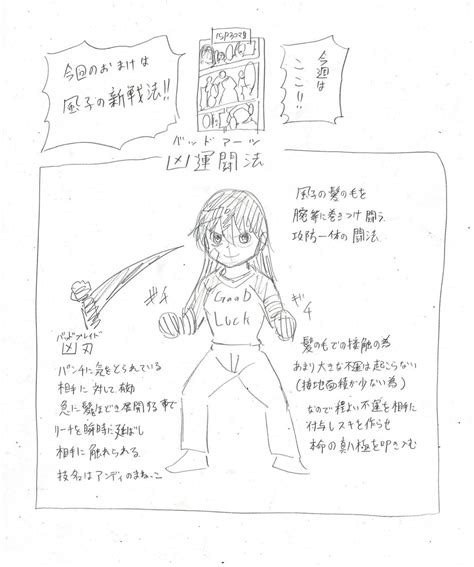 今週は
ここ!!
今回のおまけは
風子の新戦法!!
バッドアーツ
凶運闘法
風子の髪の毛を
腕等に巻きつけ闘う
攻防一体の闘法
ギチ
ギチ
Good
Luck
バッドブレイド
凶刃
パンチに気をとられている
相手に対して有効
急に髪をほどき展開する事で
リーチを瞬時に延ばし
相手に触れられる
技名はアンディのまねっこ
髪の毛での接触の為
あまり大きな不運は起こらない
(接地面積が少ない為)
なので程よい不運を相手に
付与しスキを作らせ
本命の真八極を叩き込む